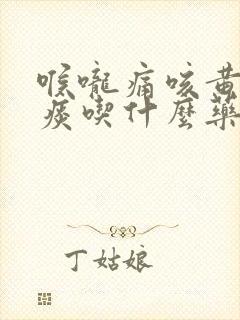 喉嚨痛咳黃
痰喫什麼藥
丁姑娘